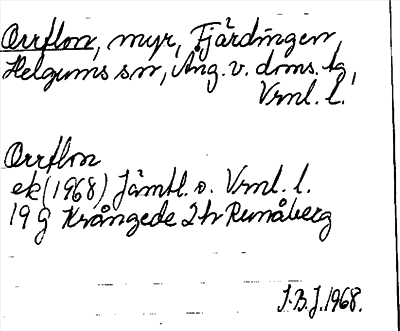 Orrflon, myr, Fjärdingen,
Helgums sn, Ång. v. doms. tg,
Vrnl. l.
Orrflon
ek (1968) Jämtl. o. Vrnl. l.
19 G Krångede 2h Runåberg
J.B.J. 1968.